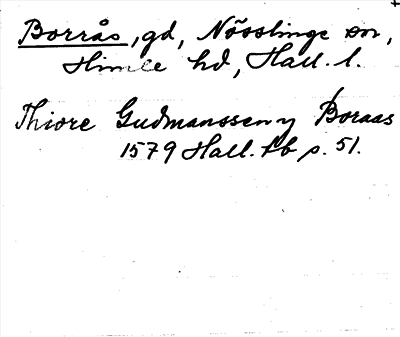 Borrås, gd, Nösslinge sn,
Himle hd, Hall. l.
Thiore Gudmanssen y Boraas
1579 Hall. tb s. 51.